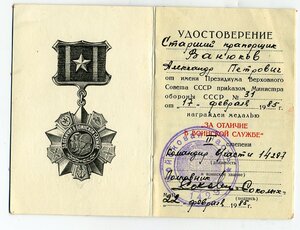 УДОСТОВЕРЕНИЕ
Старший прапорщик
Ванюков
Александр Петрович
от имени Президиума Верховного
Совета СССР приказом Министра
обороны СССР №
от "17" февраля 1985 г.
награжден медалью
"ЗА ОТЛИЧИЕ
В ВОИНСКОЙ СЛУЖБЕ"
II степени
Командир в/части 14287
Полковник
(подпись)
22 февраля 1985 г.